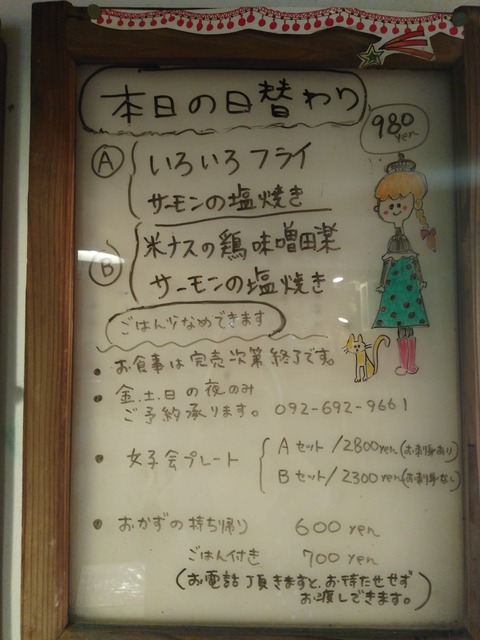 本日の日替わり
980
yen
A いろいろフライ
サーモンの塩焼き
B 米ナスの鶏味噌田楽
サーモンの塩焼き
ごはん少なめできます
• お食事は完売次第終了です。
• 金.土.日の夜のみ
ご予約承ります。 092-692-9661
• 女子会プレート
Aセット/2800yen(お刺身あり)
Bセット/2300yen(お刺身なし)
• おかずの持ち帰り 600 yen
ごはん付き 700 yen
(お電話頂きますと、お待たせせず
お渡しできます。)